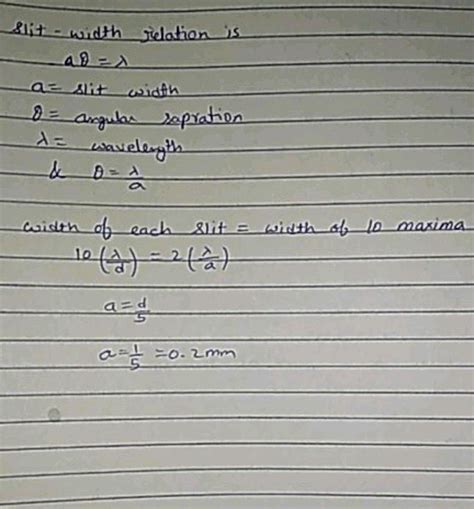 slit - width relation is
aθ = λ
a = slit width
θ = angular sapration
λ = wavelength
& θ = λ/a
width of each slit = width of 10 maxima
10 (λ/d) = 2 (λ/a)
a = d/5
a = 1/5 = 0.2mm